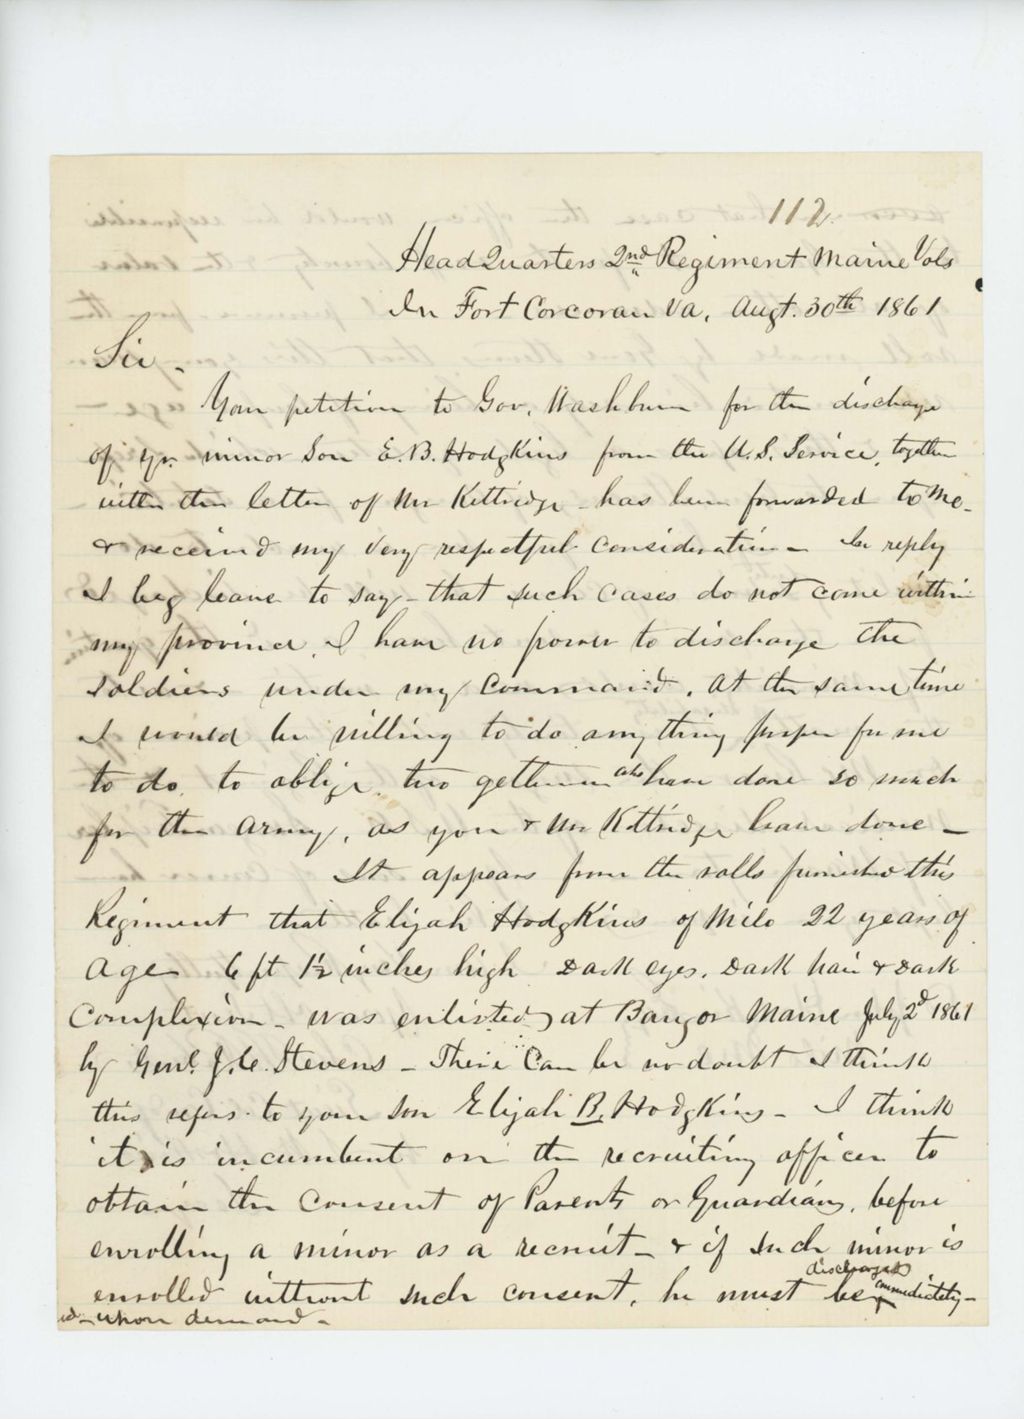 112.
Head Quarters 2nd Regiment Maine Vols
In Fort Corcoran Va. Augt. 30th 1861
Sir -
Your petition to Gov. Washburn for the discharge
of yr. minor Son E. B. Hodgkins from the U. S. Service, together
with the letter of Mr Kittridge - has been forwarded to me -
& received my very respectful consideration - In reply
I beg leave to say - that such cases do not come within
my province. I have no power to discharge the
soldiers under my command. At the same time
I would be willing to do any thing proper for me
to do, to oblige two getlemen who have done so much
for the army, as you & Mr Kittridge have done -
It appears from the rolls furnished this
Regiment that Elijah Hodgkins of Milo 22 years of
age 6 ft 1½ inches high Dark eyes, Dark hair & Dark
Complexion - was enlisted at Bangor Maine July 2d 1861
by Genl. J. C. Stevens - There can be no doubt I think
this refers to your son Elijah B. Hodgkins - I think
it is incumbent on the recruiting officer to
obtain the consent of Parents or Guardians, before
enrolling a minor as a recruit - & if such minor is
enrolled without such consent, he must be discharged immediately -
upon demand -